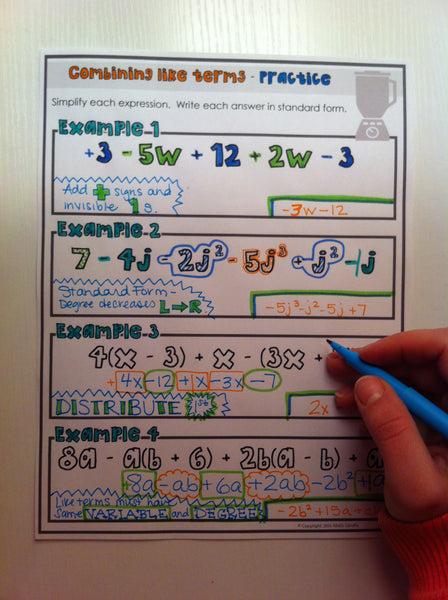 Combining like terms - Practice
Simplify each expression. Write each answer in standard form.
Example 1
+3 - 5w + 12 + 2w - 3
Add + signs and
invisible 1s.
-3w-12
Example 2
7 - 4j - 2j² - 5j³ + j² - 1j
Standard Form -
Degree decreases L→R
-5j³-j²-5j+7
Example 3
4(x - 3) + x - (3x +
+4x-12+1x-3x-7
DISTRIBUTE 1st
2x
Example 4
8a - a(b + 6) + 2b(a - b) + a
+8a-ab+6a+2ab-2b²+1a
Like terms must have
same VARIABLE and DEGREE
-2b²+15a+
© Copyright Math Giraffe